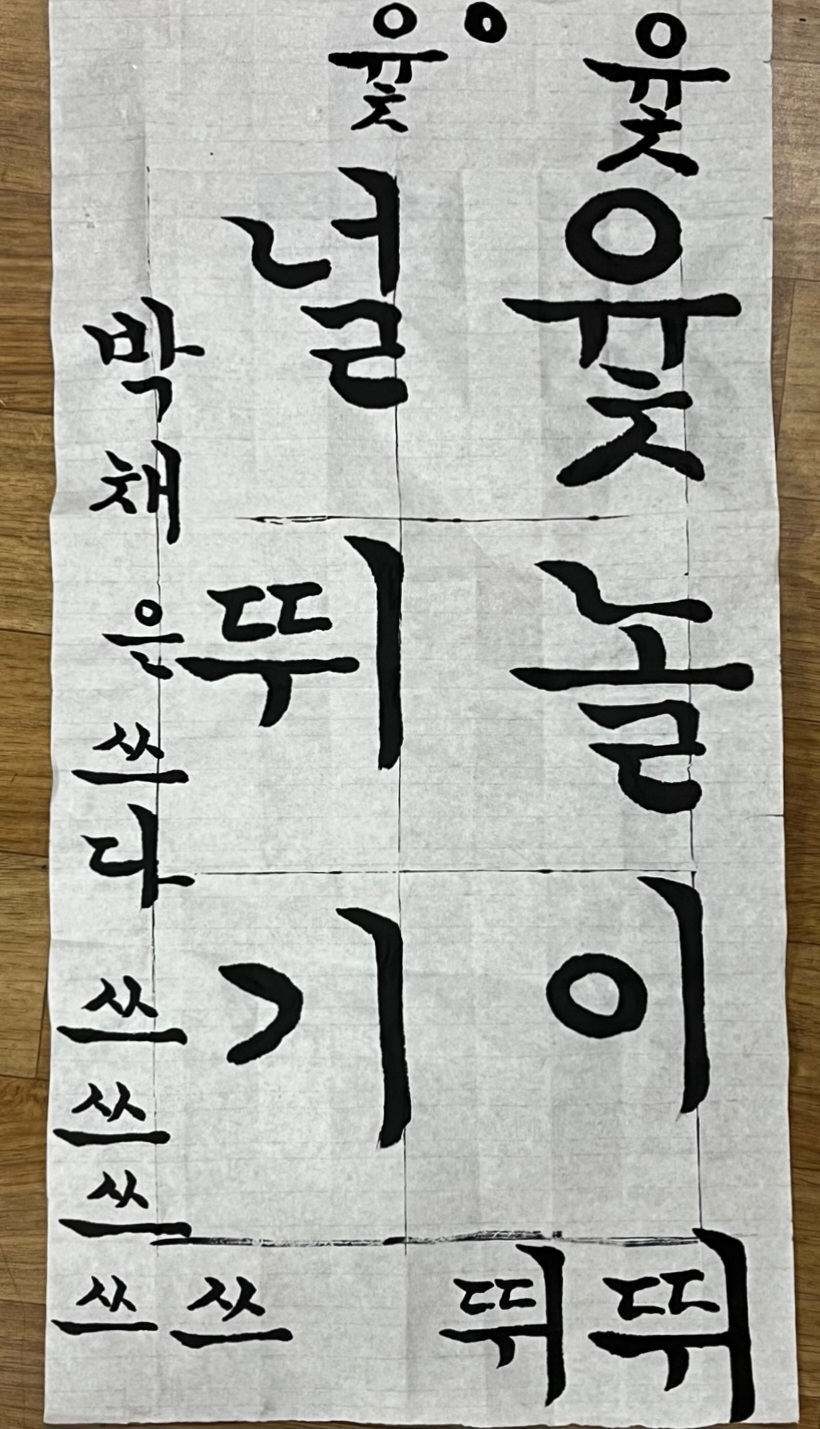 윷
윷놀이
뛰
ㅇ
윷
널뛰기
뛰
박채은쓰다
쓰쓰쓰쓰
쓰